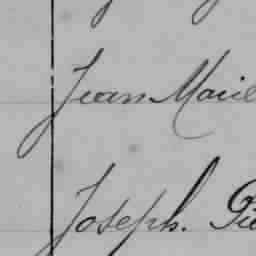 Jean Marie
Joseph. Pie